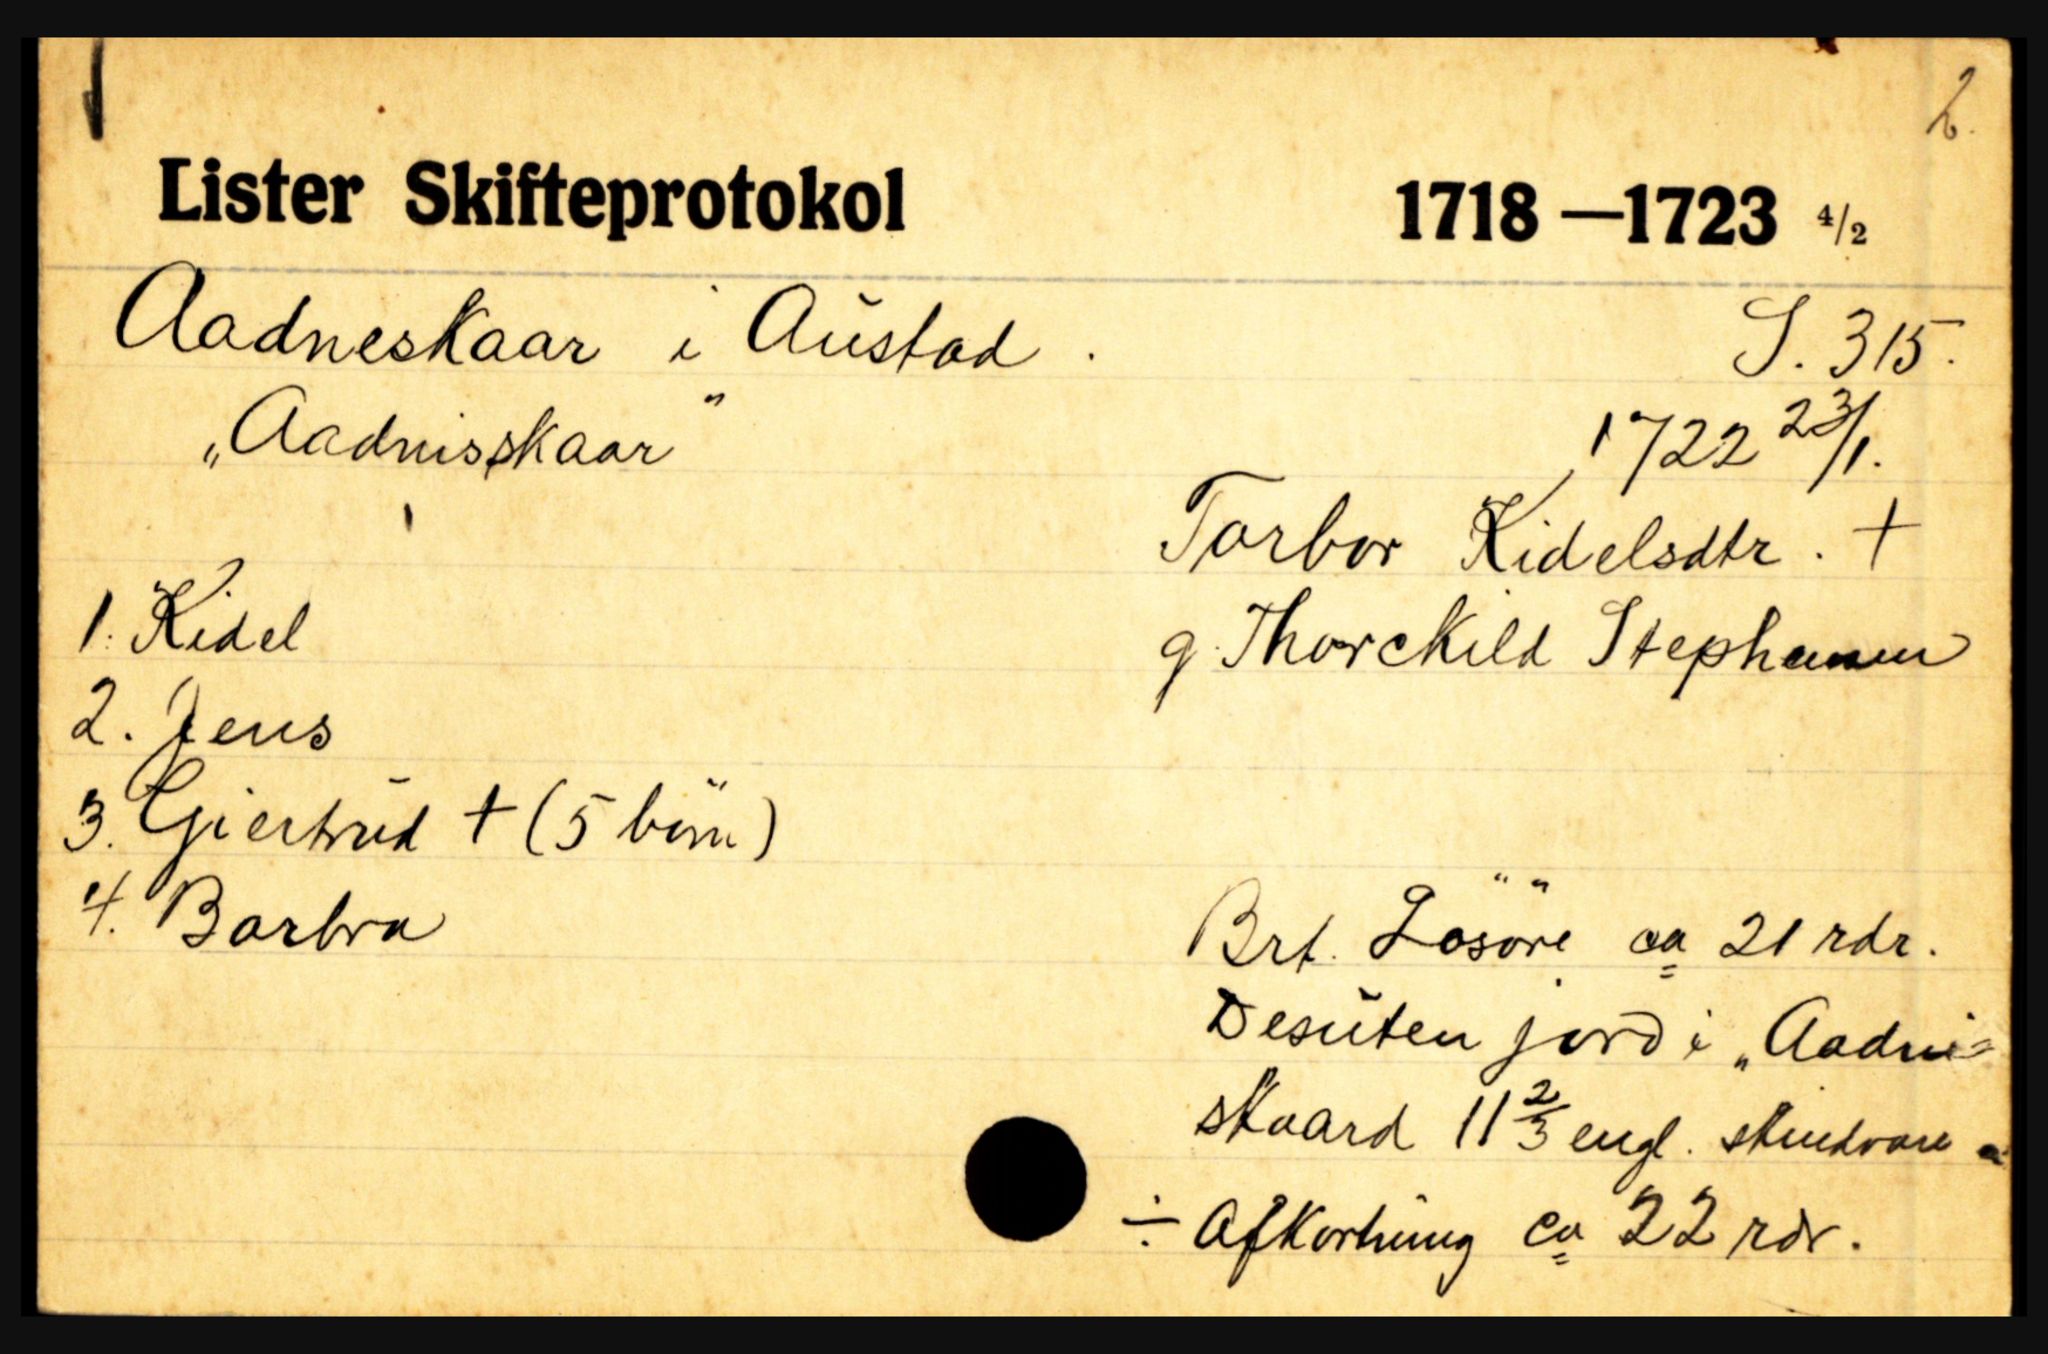 2.
Lister Skifteprotokol 1718—1723 4/2
Aadneskaar i Austad. S. 315.
„Aadnisskaar" 1722 23/1.
Torbor Kidelsdtr. +
1. Kidel
g. Thorckild Stephansen
2. Jens
3. Giertrud + (5 börn)
4. Barbra
Brt. Lösöre ca 21 rdr.
Desuten jord i „Aadni=
skaard 11 2/3 engl. skindvare
÷ Afkortning ca 22 rdr.